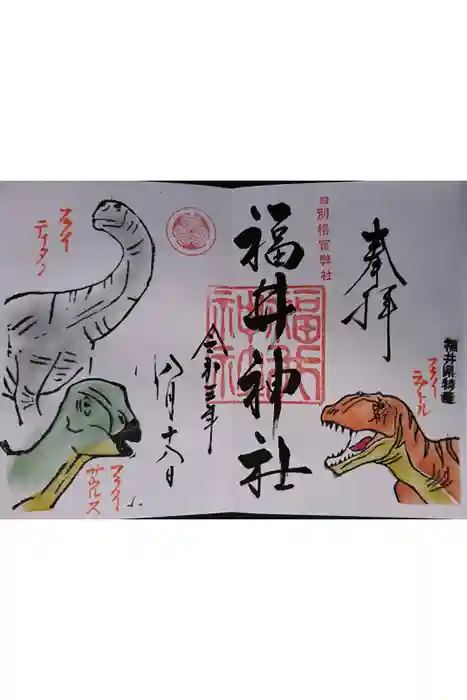 奉拝
旧別格官幣社
福井神社
福井神社
令和三年
八月十八日
福井県特産
フクイ
ラプトル
フクイ
ティタン
フクイ
サウルス